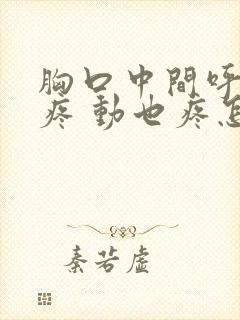 胸口中間呼
疼 動也疼怎
秦若虛